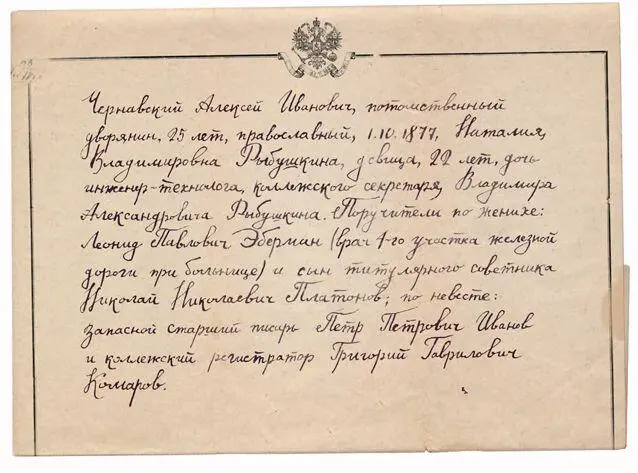 Чернавский Алексей Иванович, потомственный
дворянин, 25 лет, православный, 1.10.1877, Наталия,
Владимировна Рыбушкина, девица, 22 лет, дочь
инженер-технолога, коллежского секретаря, Владимира
Александровича Рыбушкина. Поручители по женихе:
Леонид Павлович Эберман (врач 1-го участка железной
дороги при больнице) и сын титулярного советника
Николай Николаевич Платонов; по невесте:
запасной старший писарь Петр Петрович Иванов
и коллежский регистратор Григорий Гаврилович
Комаров.